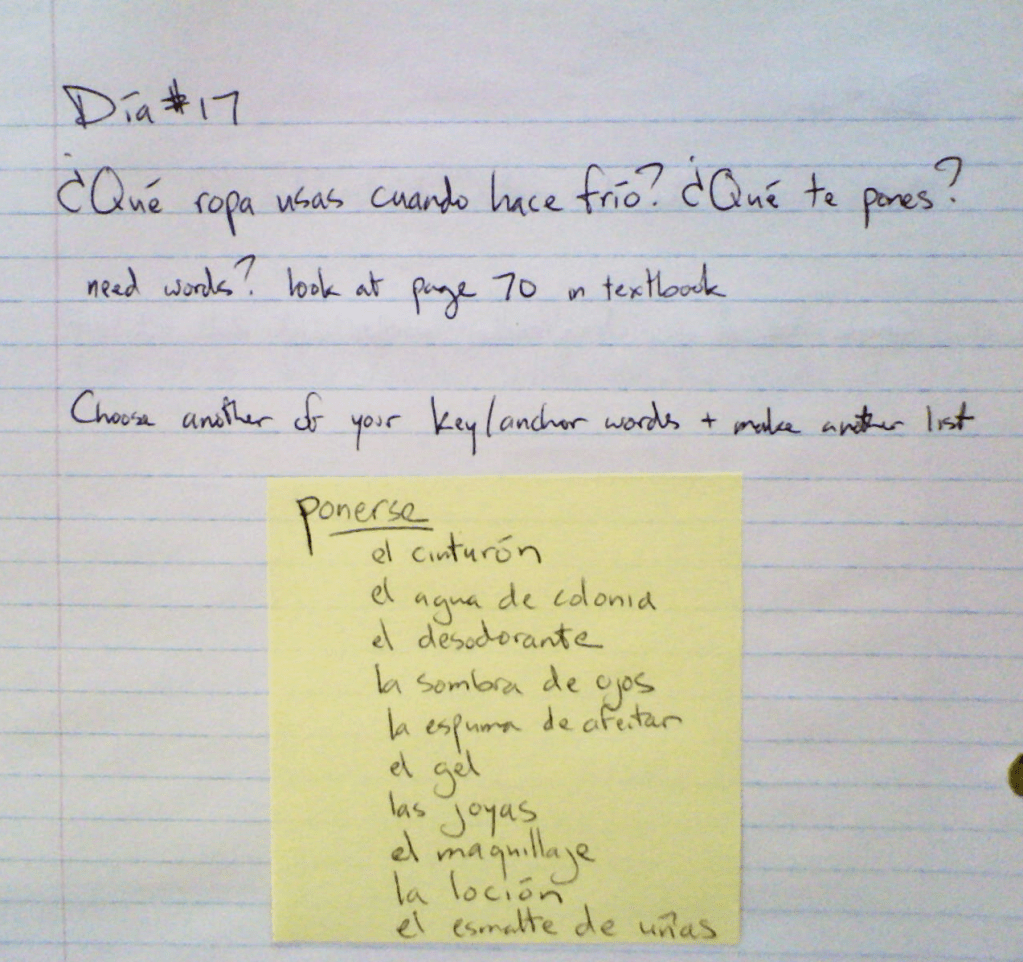 Día #17
¿Qué ropa usas cuando hace frío? ¿Qué te pones?
need words? look at page 70 in textbook
Choose another of your key/anchor words + make another list
ponerse
el cinturón
el agua de colonia
el desodorante
la sombra de ojos
la espuma de afeitar
el gel
las joyas
el maquillaje
la loción
el esmalte de uñas